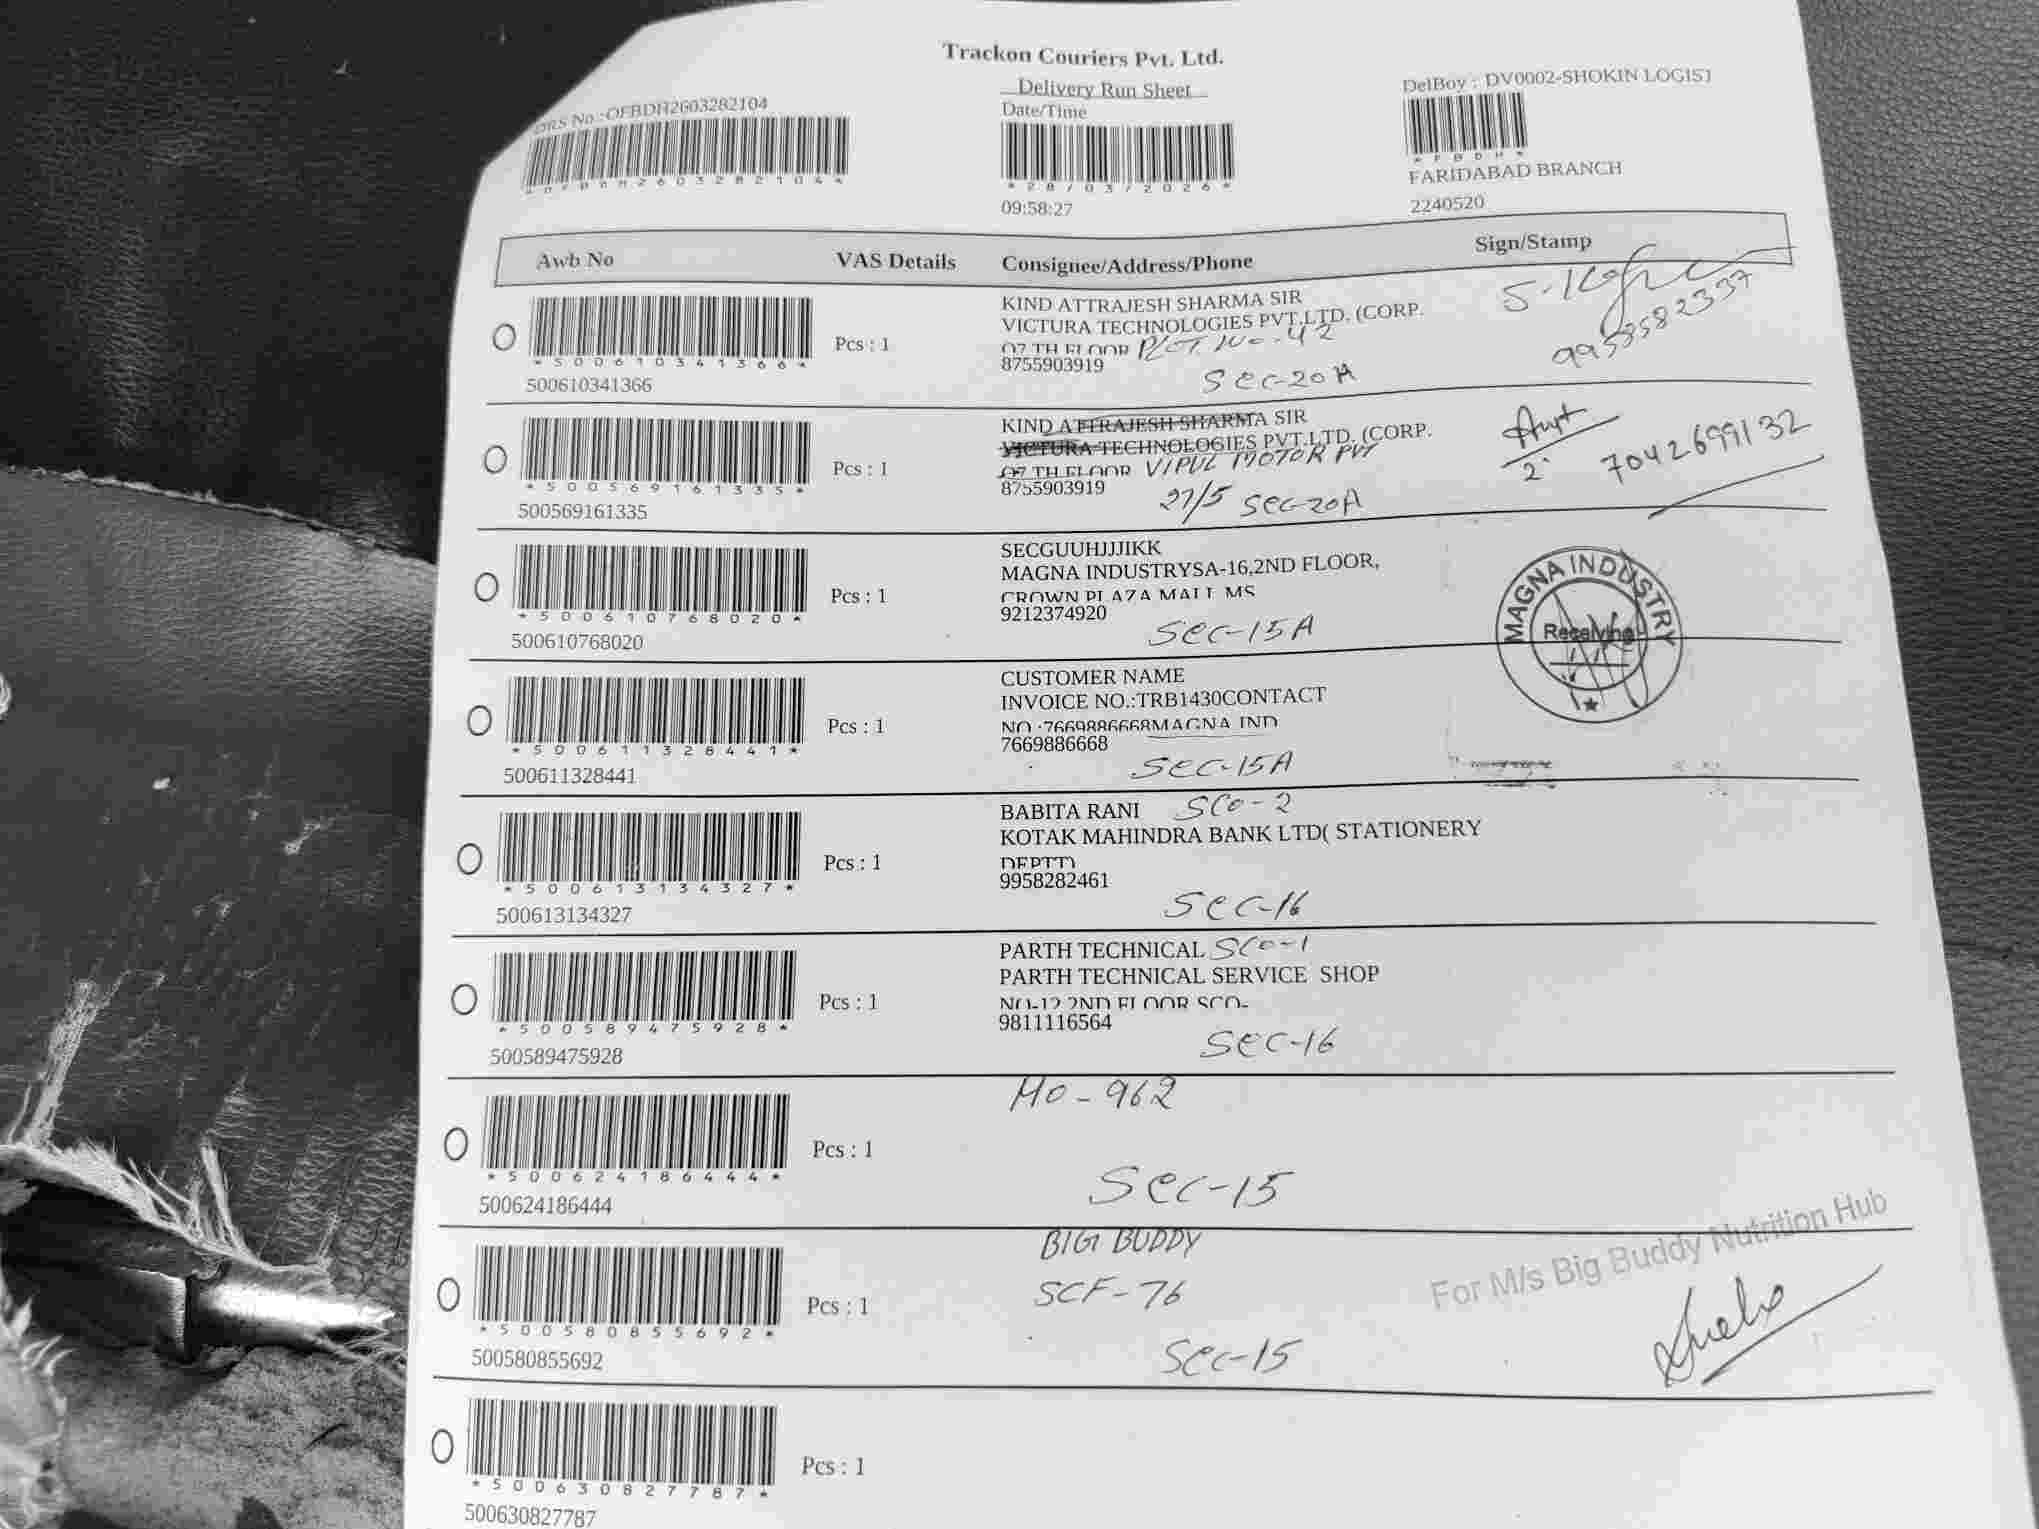 Trackon Couriers Pvt. Ltd.
Delivery Run Sheet
DRS No :-OFBDH2603282104
*OFBDH2603282104*
Date/Time
*28/03/2026*
09:58:27
DelBoy : DV0002-SHOKIN LOGIST
*FBDH*
FARIDABAD BRANCH
2240520
Awb No VAS Details Consignee/Address/Phone Sign/Stamp
*500610341366*
500610341366
Pcs : 1
KIND ATTRAJESH SHARMA SIR
VICTURA TECHNOLOGIES PVT.LTD. (CORP.
O7 TH FLOOR PLOT No-42
8755903919
Sec-20A
*500569161335*
500569161335
Pcs : 1
KIND ATTRAJESH SHARMA SIR
VICTURA TECHNOLOGIES PVT.LTD. (CORP.
O7 TH FLOOR VIPUL MOTOR PVT
8755903919
27/5 Sec-20A
7042699132
*500610768020*
500610768020
Pcs : 1
SECGUUHJJJIKK
MAGNA INDUSTRYSA-16,2ND FLOOR,
CROWN PLAZA MALL MS
9212374920
Sec-15A
MAGNA INDUSTRY
Receiving
*500611328441*
500611328441
Pcs : 1
CUSTOMER NAME
INVOICE NO.:TRB1430CONTACT
NO.:7669886668MAGNA IND
7669886668
Sec-15A
*500613134327*
500613134327
Pcs : 1
BABITA RANI SCO-2
KOTAK MAHINDRA BANK LTD( STATIONERY
DEPTT)
9958282461
Sec-16
*500589475928*
500589475928
Pcs : 1
PARTH TECHNICAL SCO-1
PARTH TECHNICAL SERVICE SHOP
NO-12 2ND FLOOR SCO-
9811116564
Sec-16
*500624186444*
500624186444
Pcs : 1
HO-962
Sec-15
*500580855692*
500580855692
Pcs : 1
BIG BUDDY
SCF-76
Sec-15
For M/s Big Buddy Nutrition Hub
*500630827787*
500630827787
Pcs : 1